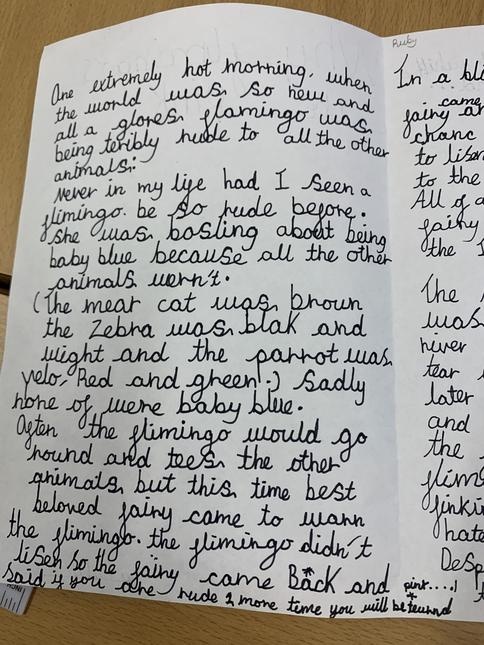 One extremely hot morning, when
the world was so new and
all a glores flamingo was
being teribly rude to all the other
animals:
Never in my life had I seen a
flimingo. be so rude before.
She was bosling about being
baby blue because all the other
animals wern't.
(The mear cat was brown
the Zebra was blak and
wight and the parrot was
yelo, Red and green:) Sadly
none of were baby blue.
Often the flimingo would go
round and tees the other
animals but this time best
beloved fairy came to warn
the flimingo. the flimingo didn't
lisen so the fairy came Back and
said if you are rude 1 more time you will be teurnd
pink....!
Ruby
In a bli
came
fairy an
chanc
to lisen
to the
All of a
fairy
the
The
was
river
tear
later
and
the
flim
finkin
hate
Desp